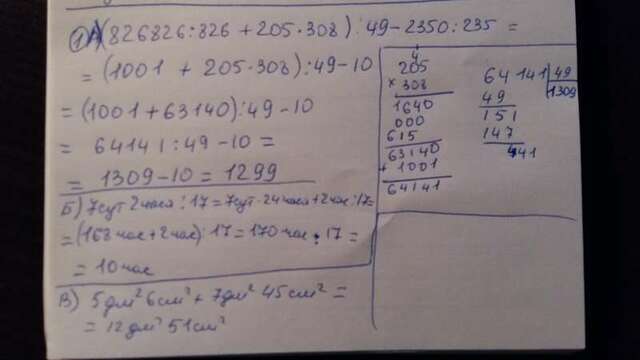 ① А) (826826:826 + 205·308):49 - 2350:235 =
= (1001 + 205·308):49 - 10
= (1001 + 63140):49 - 10
= 64141:49 - 10 =
= 1309 - 10 = 1299
Б) 7сут 2часа:17 = 7сут·24часа + 2час:17
= (168час + 2час):17 = 170час:17 =
= 10час
В) 5дм² 6см² + 7дм² 45см² =
= 12дм² 51см²
4
205
× 308
1640
000
615
63140
+ 1001
64141
64141 | 49
49 | 1309
151
147
441